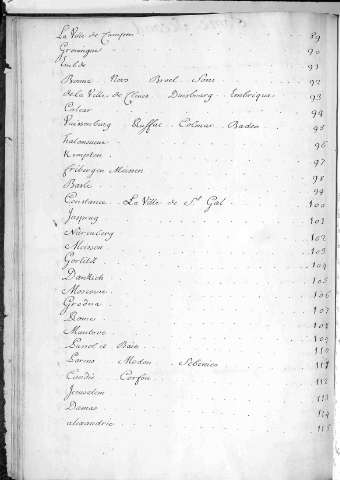 La Ville de Campen 89
Groningue 90
Embde 91
Bonne Nors Broel Sons 92
de la Ville de Cleves Duisbourg Embrique 93
Calcar 94
Ruffac Colmar Baden 95
96
Kempten 97
Friberg en Meissen 98
Basle 99
Constance La Ville de St Gal 100
101
Nuremberg 102
Meissen 103
Gorlitz 104
Dantzich 105
Moscovie 106
Grodna 107
Rome 108
Mantove 109
Lunel et Baia 110
Parme Modon Sebenico 111
Candie Corfou 112
Jerusalem 113
Damas 114
alexandrie 115